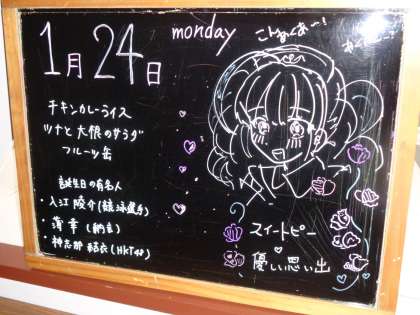 1月24日 monday
チキンカレーライス
ツナと大根のサラダ
フルーツ缶
誕生日の有名人
・入江 陵介(競泳選手)
・蒲 幸(納言)
・神志那 結衣(HKT48)
スイートピー
優しい思い出